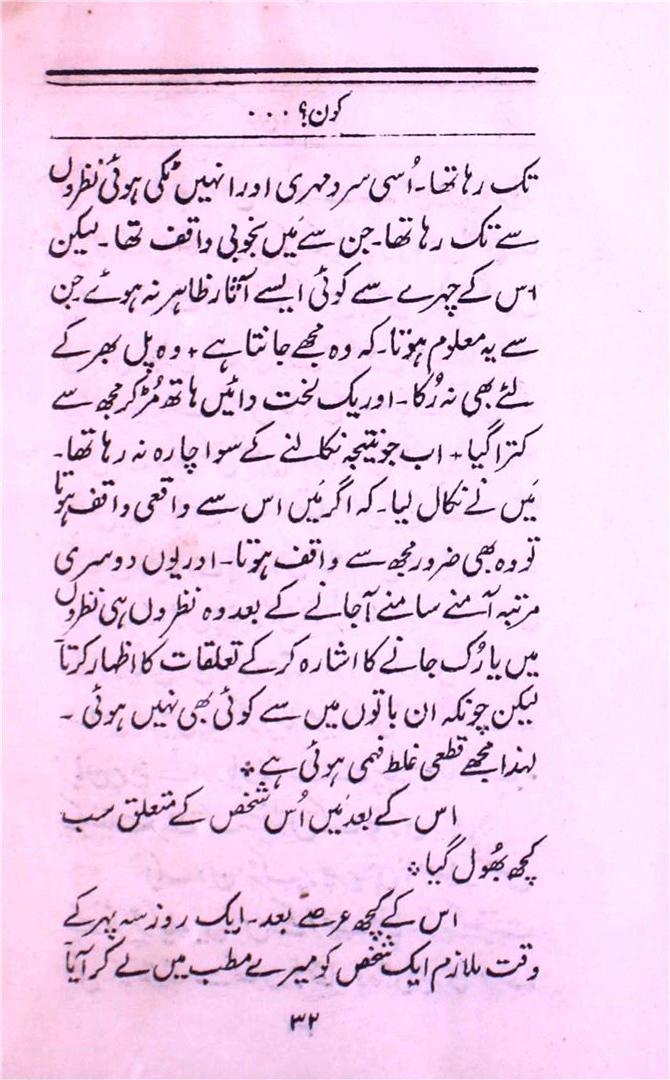 کون؟ ...
تک رہا تھا۔ اُسی سرد مہری اور انہیں ٹکی ہوئی نظروں
سے تک رہا تھا۔ جن سے مَیں بخوبی واقف تھا۔ لیکن
اس کے چہرے سے کوئی ایسے آثار ظاہر نہ ہوئے جن
سے یہ معلوم ہوتا۔ کہ وہ مجھے جانتا ہے + وہ پل بھر کے
لئے بھی نہ رُکا۔ اور یک لخت دائیں ہاتھ مُڑ کر مجھ سے
کترا گیا + اب جو نتیجہ نکالنے کے سوا چارہ نہ رہا تھا۔
مَیں نے نکال لیا۔ کہ اگر مَیں اس سے واقعی واقف ہوتا
تو وہ بھی ضرور مجھ سے واقف ہوتا۔ اور یوں دوسری
مرتبہ آمنے سامنے آجانے کے بعد وہ نظروں ہی نظروں
میں یا رُک جانے کا اشارہ کر کے تعلقات کا اظہار کرتا
لیکن چونکہ ان باتوں میں سے کوئی بھی نہیں ہوئی ۔
لہذا مجھے قطعی غلط فہمی ہوئی ہے *
اس کے بعد مَیں اُس شخص کے متعلق سب
کچھ بھُول گیا *
اس کے کچھ عرصے بعد۔ ایک روز سہ پہر کے
وقت ملازم ایک شخص کو میرے مطب میں لے کر آیا
۳۲